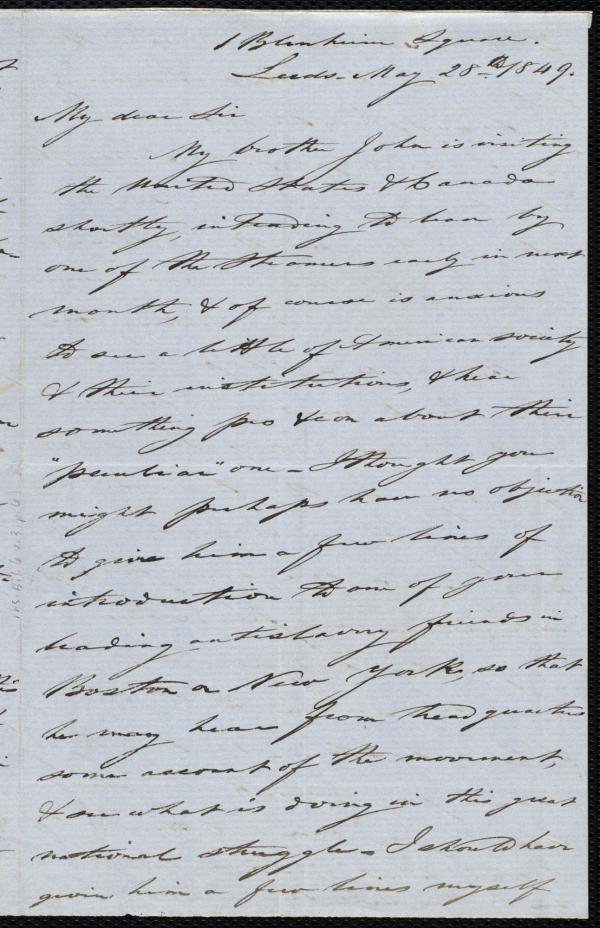 1 Blenheim Square.
Leeds. May 28th 1849.
My dear Sir
My brother John is visiting
the United States & Canada
shortly, intending to leave by
one of the Steamers early in next
month, & of course is anxious
to see a little of American society
& their institutions, & hear
something pro & con about their
"peculiar" one – I thought you
might perhaps have no objection
to give him a few lines of
introduction to one of your
leading antislavery friends in
Boston or New York, so that
he may hear from head quarters
some account of the movement,
& see what is doing in this great
national struggle – I should have
given him a few lines myself